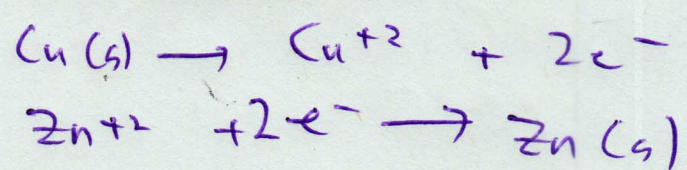 Cu (s) → Cu⁺² + 2e⁻
Zn⁺² + 2e⁻ → Zn (s)